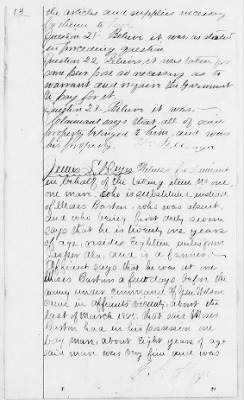 13
the articles and supplies necessary
Question 21. Believe it was as stated
in preceding question
Question 22. Believe it was taken for
some purpose so necessary as to
warrant and require the Government
to pay for it.
Question 23. Believe it was.
Claimant says that all of said
property belonged to him, and was
his property.
Witness for Claimant
in behalf of the taking item No one,
one mare. Who is substitute instead
of Moses Barton, who was absent,
and who being first duly sworn
says that he is twenty one years
of age, resides Eighteen miles from
Jasper Ala. and is a farmer.
Affiant says that he was at
Moses Bartons a few days before the
army under command of Gen Wilson
came in affiants vicinity, about the
last of March 1865. that said Moses
Barton had in his possession one
bay mare, about eight years of age
said mare was very fine and was